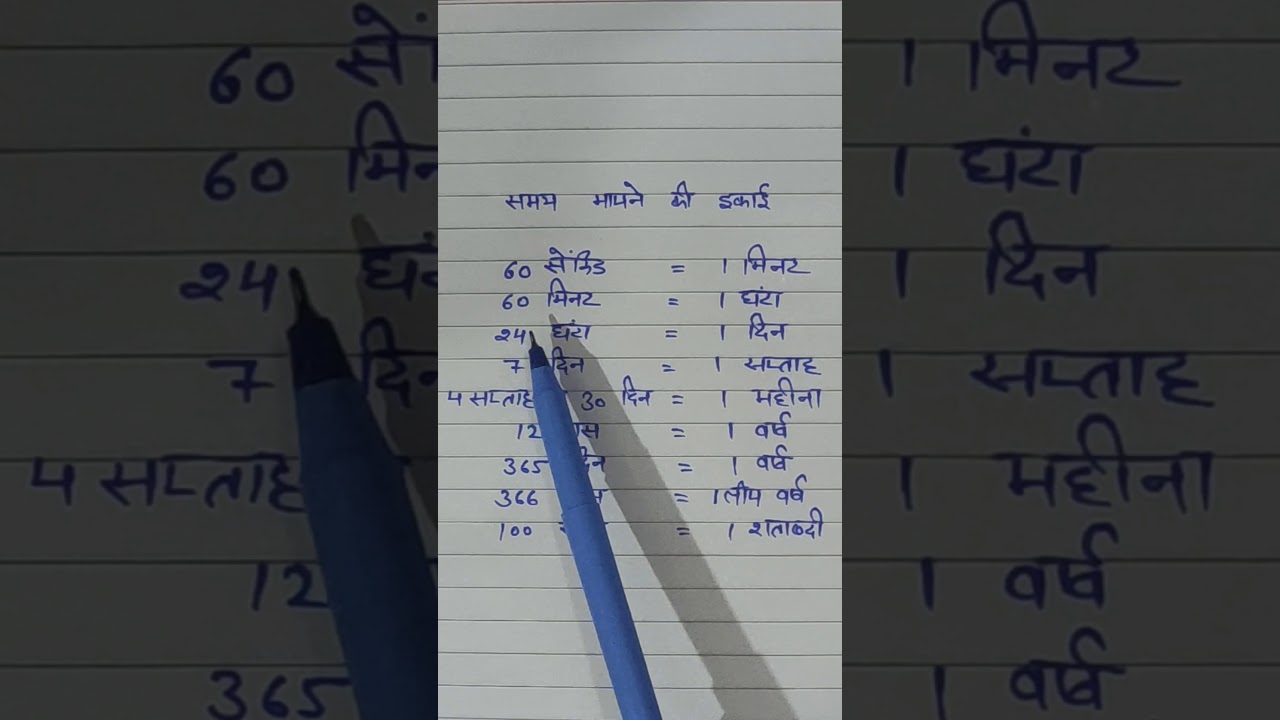 समय मापने की इकाई
60 सेंकिड = 1 मिनट
60 मिनट = 1 घंटा
24 घंटा = 1 दिन
7 दिन = 1 सप्ताह
4 सप्ताह 30 दिन = 1 महीना
12 = 1 वर्ष
365 दिन = 1 वर्ष
366 = 1 लीप वर्ष
100 = 1 शताब्दी